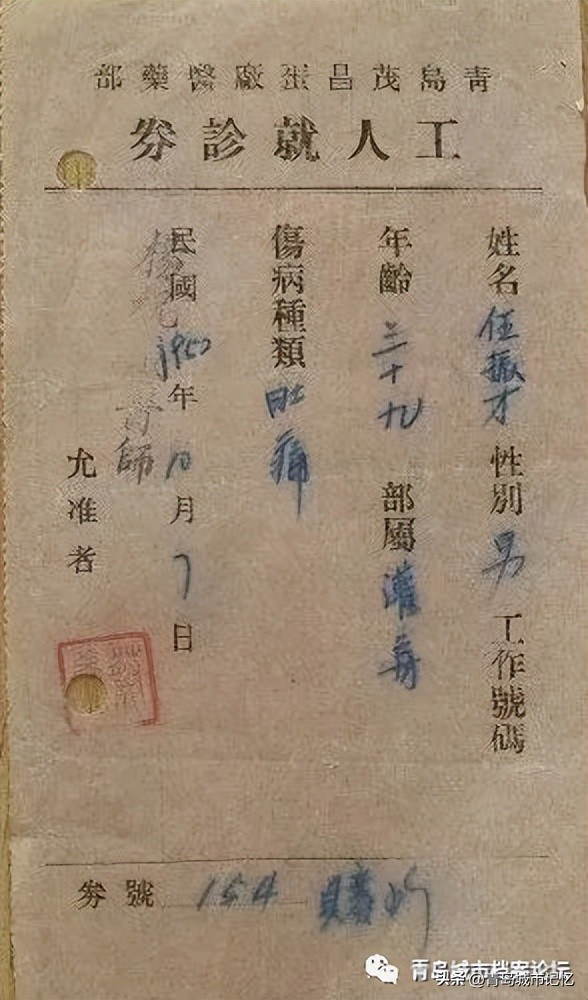 青島茂昌蛋廠醫藥部
工人就診劵
姓名 任振才 性別 男 工作號碼
年齡 三十九 部屬 灌
傷病種類 肚痛
民國1950年10月7日
師
允准者
劵號 154
青岛城市档案论坛
头条 @青岛城市记忆